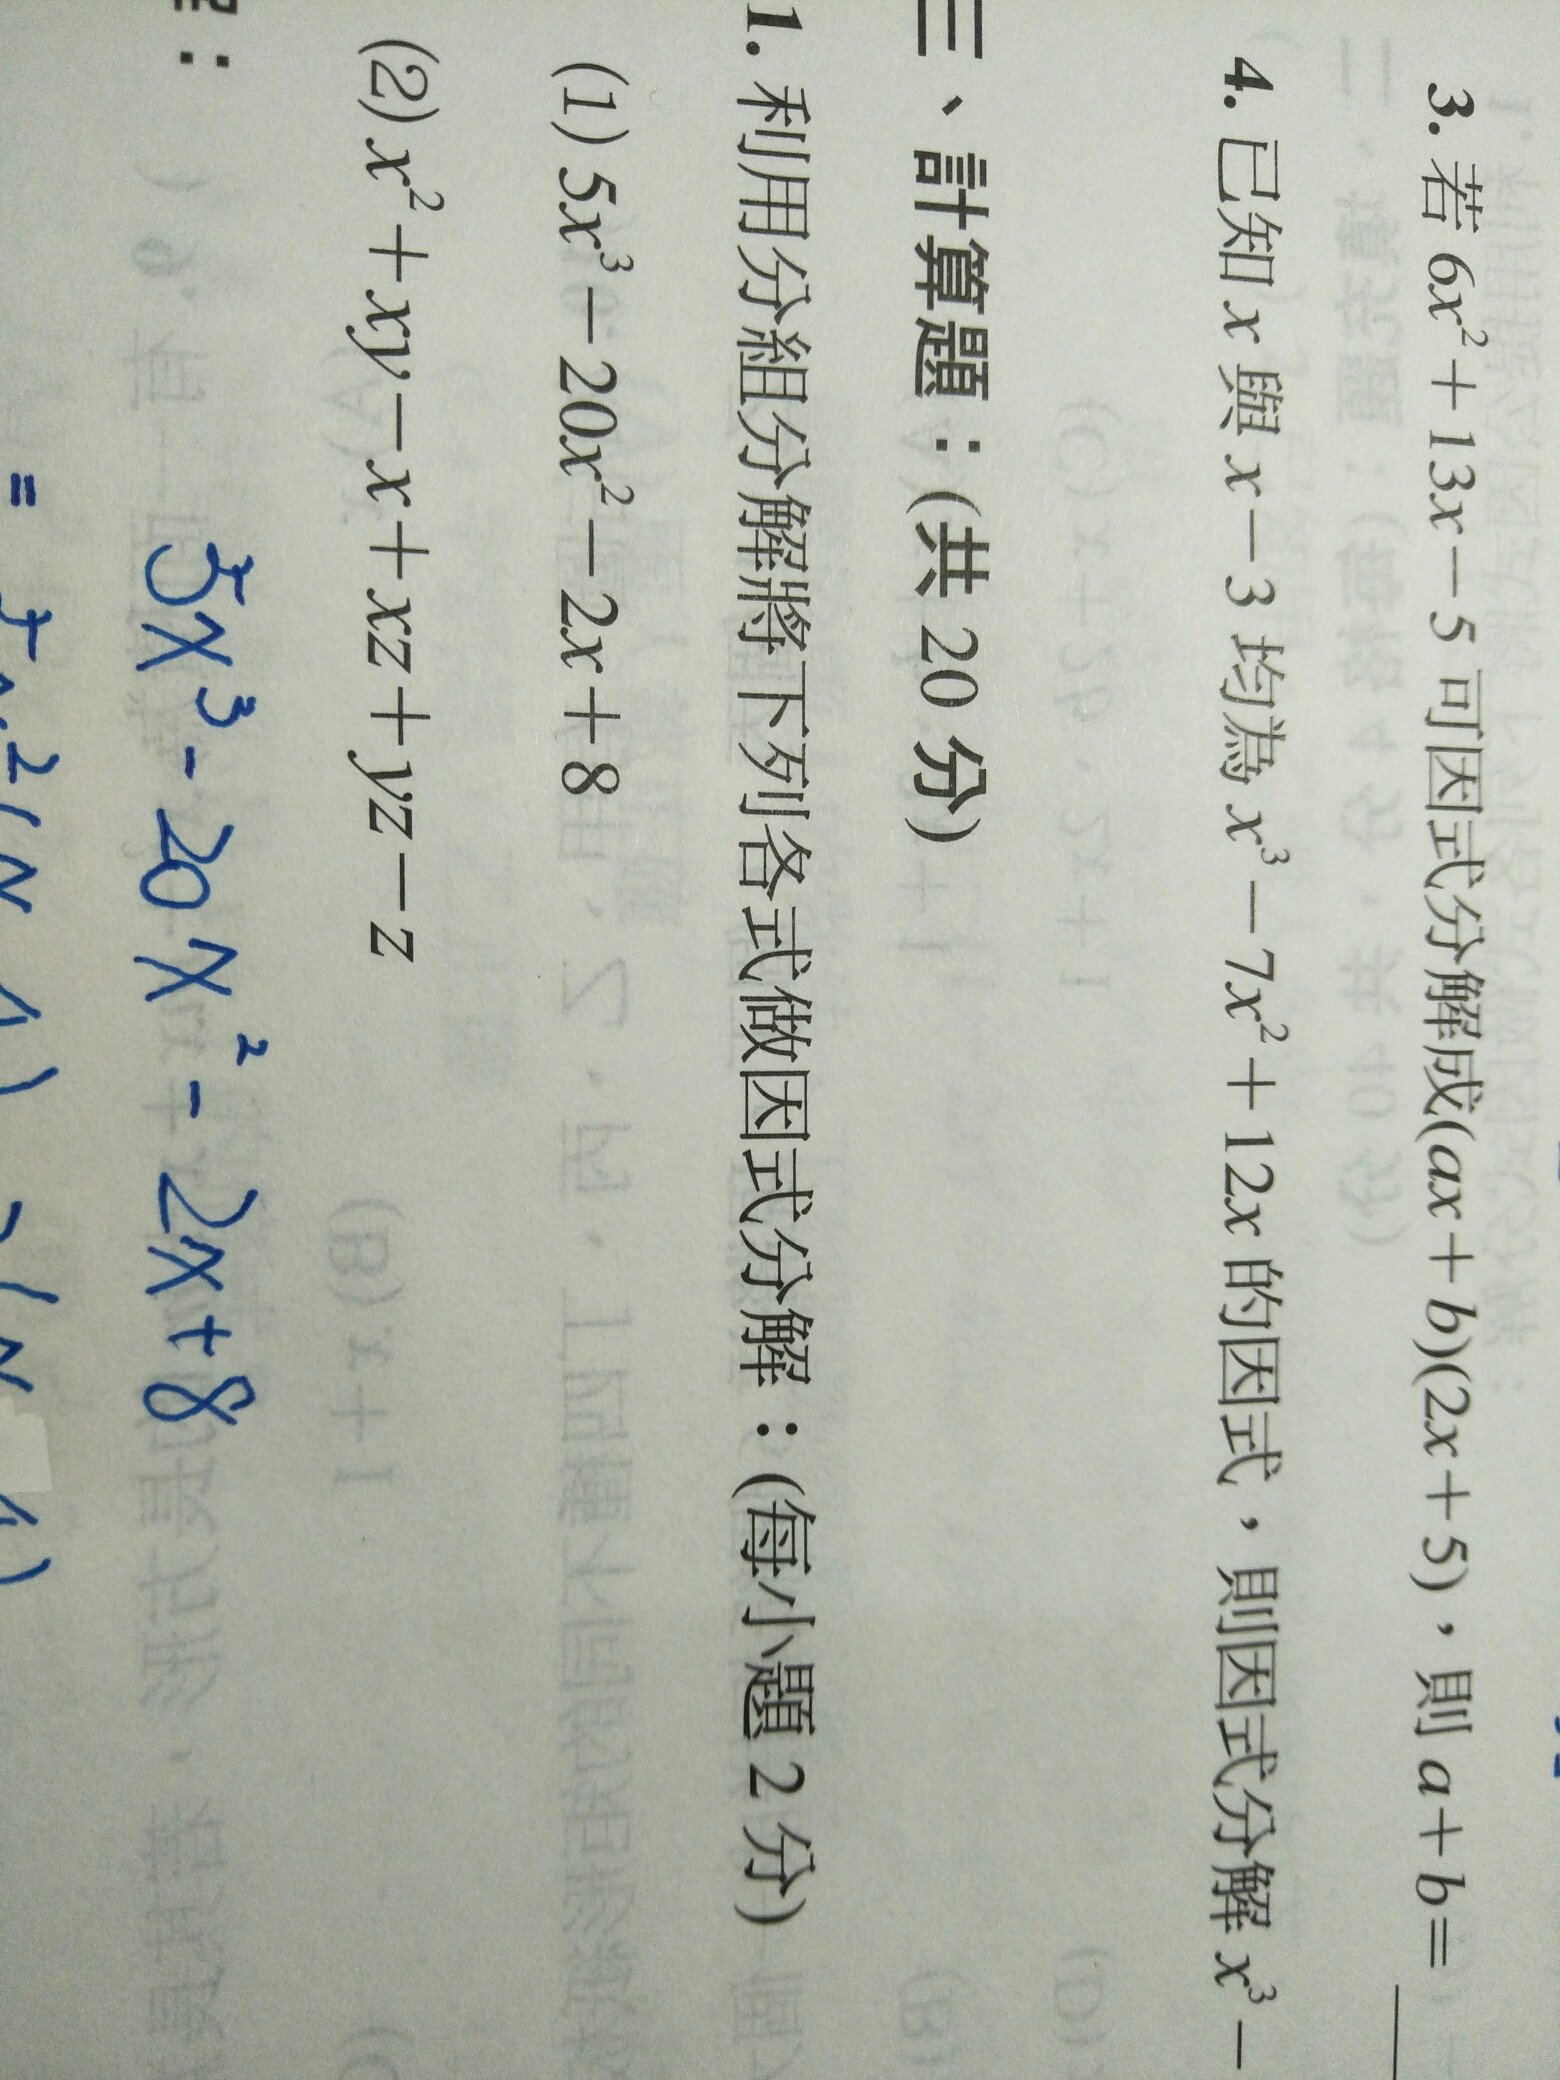 3. 若 6x²+13x-5 可因式分解成(ax+b)(2x+5)，則 a+b=
4. 已知 x 與 x-3 均為 x³-7x²+12x 的因式，則因式分解 x³-
三、計算題：(共 20 分)
1. 利用分組分解將下列各式做因式分解：(每小題 2 分)
(1) 5x³-20x²-2x+8
(2) x²+xy-x+xz+yz-z
5x³-20x²-2x+8